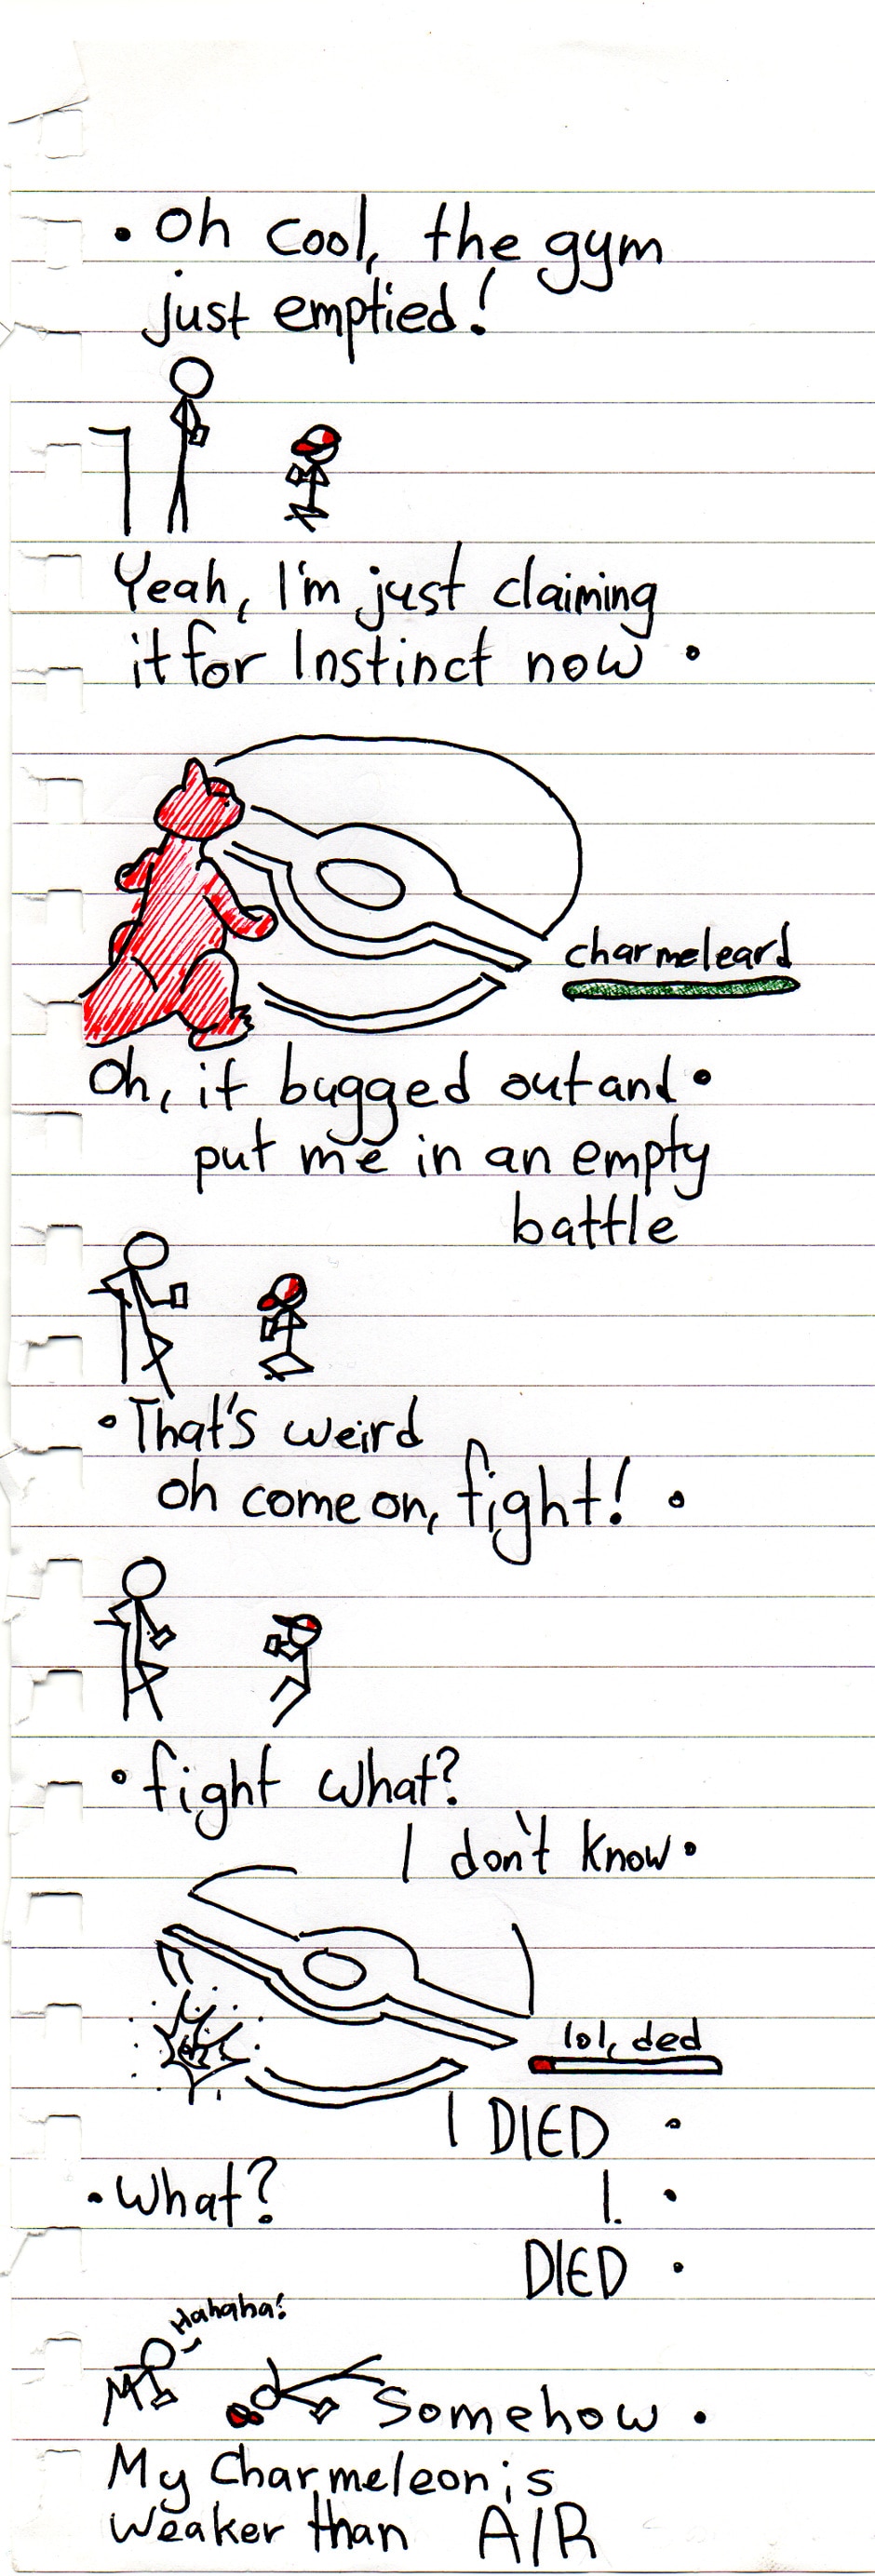 • Oh cool, the gym
just emptied!
Yeah, I'm just claiming
it for Instinct now •
charmeleard
Oh, it bugged out and •
put me in an empty
battle
• That's weird
oh come on, fight! •
• fight what?
I don't know •
lol, ded
I DIED •
• What? I. •
DIED •
Hahaha!
Somehow •
My Charmeleon is
weaker than AIR